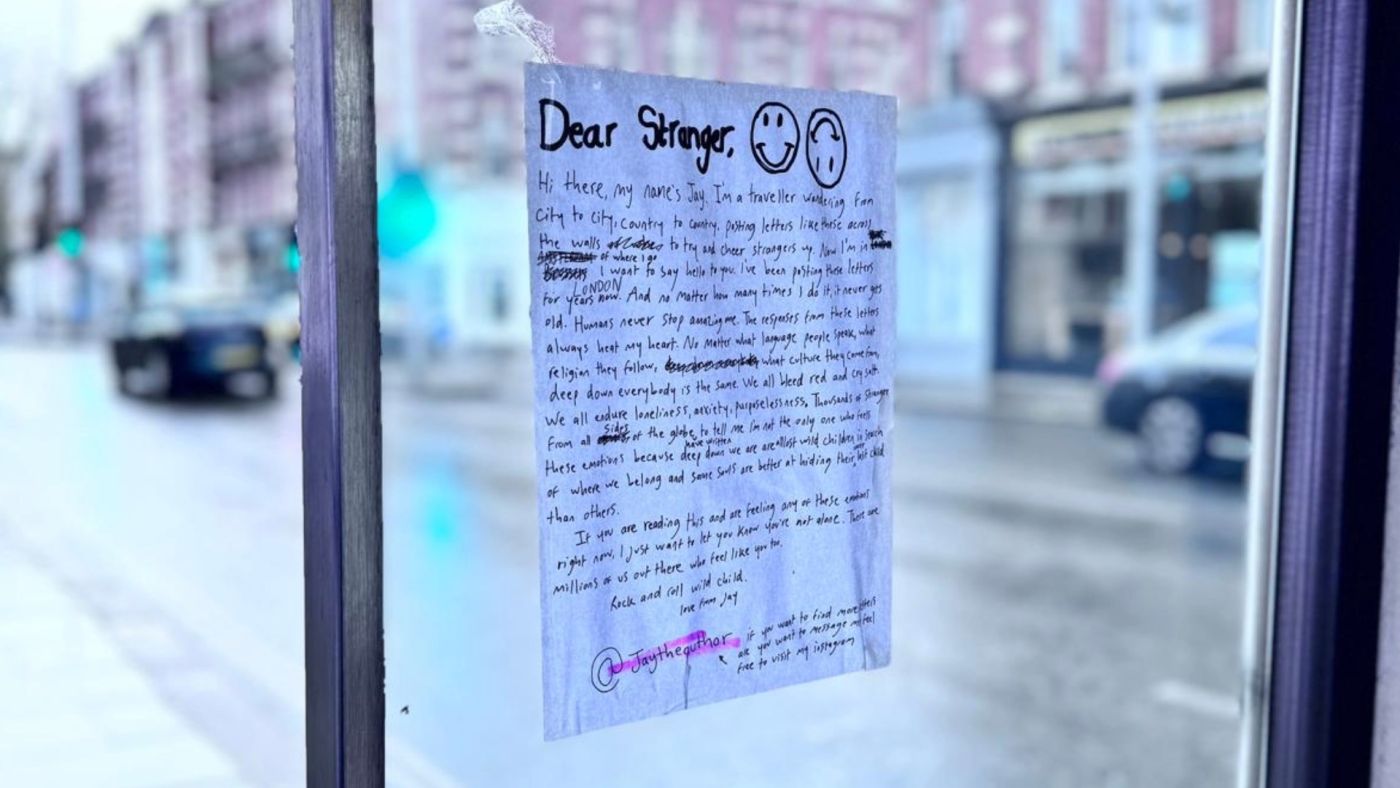 Dear Stranger,
Hi there, my name's Jay. I'm a traveller wandering from
City to city, country to country, posting letters like these across
the walls to try and cheer strangers up. Now I'm in
of where I go
I want to say hello to you. I've been posting these letters
LONDON
for years now. And no matter how many times I do it, it never gets
old. Humans never stop amazing me. The responses from these letters
always heat my heart. No matter what language people speak, what
religion they follow, what culture they come from,
deep down everybody is the same. We all bleed red and cry salt.
We all endure loneliness, anxiety, purposelessness. Thousands of stranger
sides
from all of the globe, to tell me I'm not the only one who feels
have written
these emotions because deep down we are all lost wild children in search
of where we belong and some souls are better at hiding their lost child
than others.
If you are reading this and are feeling any of these emotions
right now, I just want to let you know you're not alone. There are
millions of us out there who feel like you too.
Rock and roll wild child.
love from Jay
@Jaytheauthor
if you want to find more letters
or you want to message me feel
free to visit my instagram